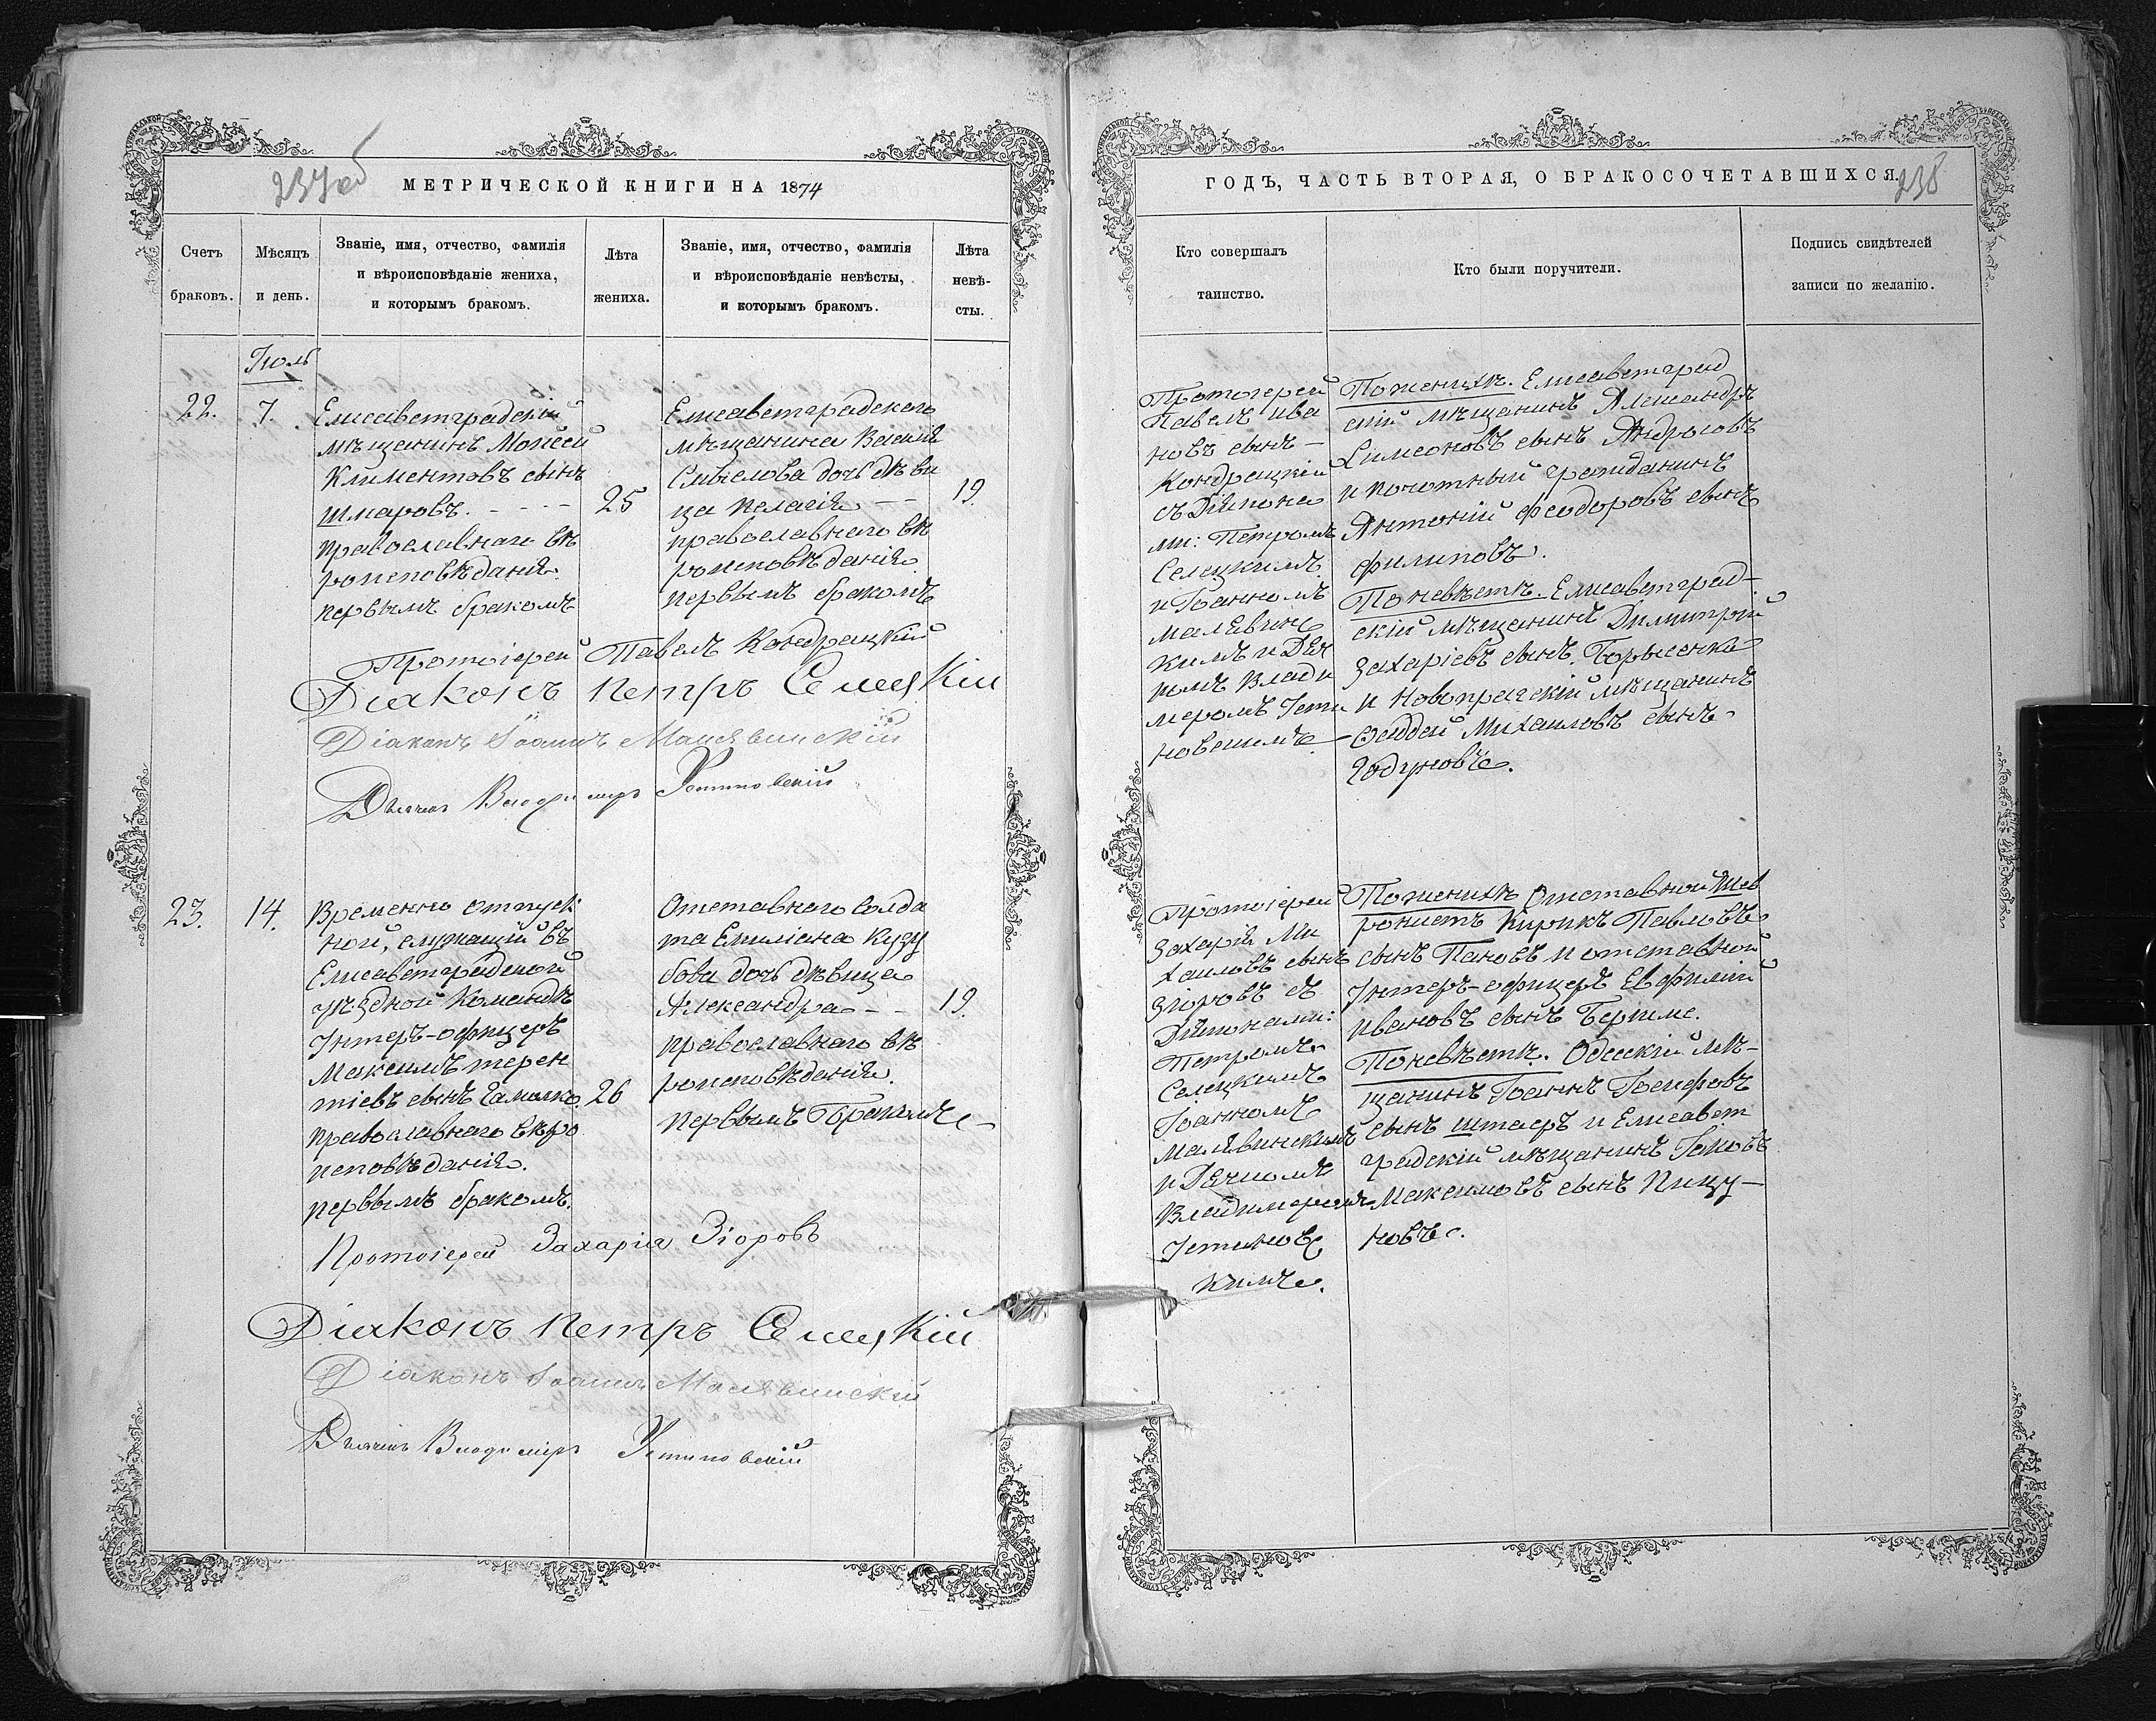 237об
МЕТРИЧЕСКОЙ КНИГИ НА 1874
Счетъ
браковъ.
Мѣсяцъ
и день.
Званіе, имя, отчество, фамилія
и вѣроисповѣданіе жениха,
и которымъ бракомъ.
Лѣта
жениха.
Званіе, имя, отчество, фамилія
и вѣроисповѣданіе невѣсты,
и которымъ бракомъ.
Лѣта
невѣ-
сты.
Іюль
22.
7.
Елисаветградскій
мѣщанинъ Моисей
Климентовъ сынъ
Шмаровъ. - - - -
православнаго вѣ
роисповѣданія.
первымъ бракомъ
25
Елисаветградскаго
мѣщанина Василія
Смыслова дочь дѣви
ца Пелагія - -
православнаго вѣ
роисповѣданія
первымъ бракомъ
19.
Протоіерей Павелъ Кондрацкій
Діаконъ Петръ Селецкій
Діаконъ Іоаннъ Малявинскій
Дьячекъ Владимиръ Устиновскій
23.
14.
Временно отпуск
ной, служащій въ
Елисаветградской
уѣздной командѣ
Унтеръ-офицеръ
Максимъ терен
тіевъ сынъ Гамалко.
православнаго вѣро
исповѣданія.
первымъ бракомъ.
26
Отставнаго солда
та Емиліана Кузу
бова дочь дѣвица
Александра - -
православнаго вѣ
роисповѣданія.
первымъ Бракомъ
19.
Протоіерей Захарія Зіоровъ
Діаконъ Петръ Селецкій
Діаконъ Іоаннъ Малявинскій
Дьячекъ Владимиръ Устиновскій
ГОДЪ, ЧАСТЬ ВТОРАЯ, О БРАКОСОЧЕТАВШИХСЯ.
238
Кто совершалъ
таинство.
Кто были поручители.
Подпись свидѣтелей
записи по желанію.
Протоіерей
Павелъ Ива
новъ сынъ -
Кондрацкій
съ Діакона
ми: Петромъ
Селецкимъ
и Іоанномъ
Малявинс
кимъ и Дяч
комъ Влади
меромъ Усти
новскимъ
По женихѣ. Елисаветград
скій мѣщанинъ Александръ
Симеоновъ сынъ Андросовъ
и почотный гражданинъ
Антоній Феодоровъ сынъ
филиповъ.
По невѣстѣ. Елисаветград-
скій мѣщанинъ Димитрій
Захаріевъ сынъ Борисенко
и новопрагскій мѣщанинъ
Фаддей Михаиловъ сынъ
Годуновъ.
Протоіерей
Захарій Ми
хаиловъ сынъ
Зіоровъ съ
Діаконами:
Петромъ
Селецкимъ
Іоанномъ
Малявинскимъ
и Дячкомъ
Владимеромъ
Устиновс
кимъ.
По женихѣ Отставной Шев
ронистъ Кирикъ Павловъ
сынъ Пановъ и отставной
Унтеръ-офицеръ Евфимій
Ивановъ сынъ
По невѣстѣ. Одесскій мѣ-
щанинъ Іоаннъ Іосифовъ
сынъ и Елисавет
градскій мѣщанинъ Іаковъ
Максимовъ сынъ Пицу-
новъ.